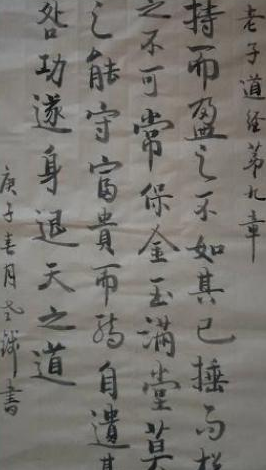 老子道经第九章
持而盈之不如其已捶而棁
之不可常保金玉满堂莫
之能守富貴而骄自遗其
咎功遂身退天之道
庚子春月 书